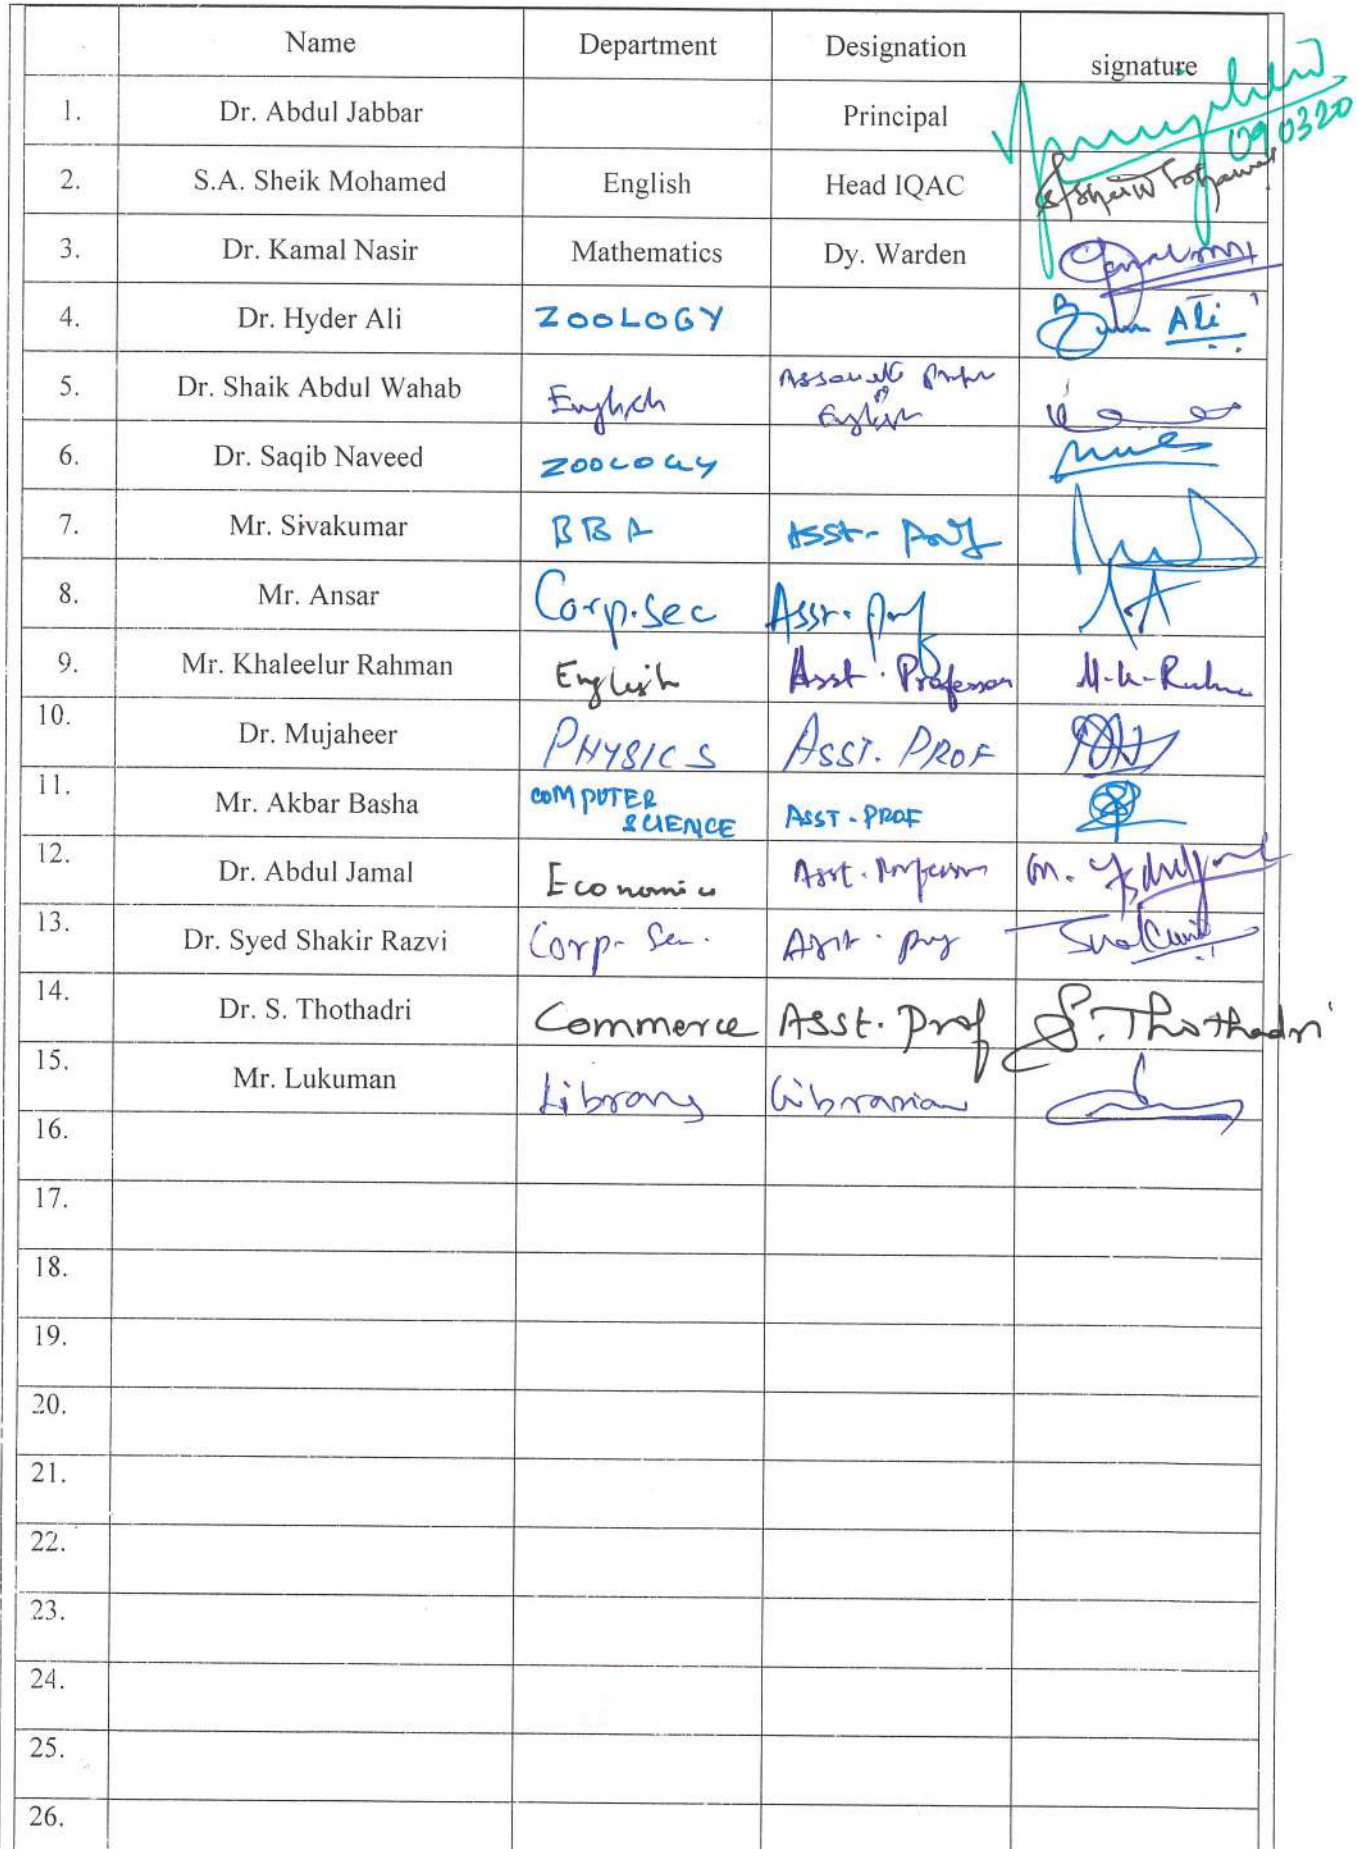 Name Department Designation signature
1. Dr. Abdul Jabbar Principal
090320
2. S.A. Sheik Mohamed English Head IQAC
3. Dr. Kamal Nasir Mathematics Dy. Warden
4. Dr. Hyder Ali ZOOLOGY Ali
5. Dr. Shaik Abdul Wahab English
English
6. Dr. Saqib Naveed ZOOLOGY
7. Mr. Sivakumar BBA Asst. Prof
8. Mr. Ansar Corp.Sec Asst. Prof
9. Mr. Khaleelur Rahman English Asst. Professor
10. Dr. Mujaheer PHYSICS ASST. PROF
11. Mr. Akbar Basha COMPUTER
SCIENCE ASST-PROF
12. Dr. Abdul Jamal Economics Asst. Professor
13. Dr. Syed Shakir Razvi Corp. Sec. Asst. Prof
14. Dr. S. Thothadri Commerce Asst. Prof S. Thothadri
15. Mr. Lukuman Library Librarian
16.
17.
18.
19.
20.
21.
22.
23.
24.
25.
26.